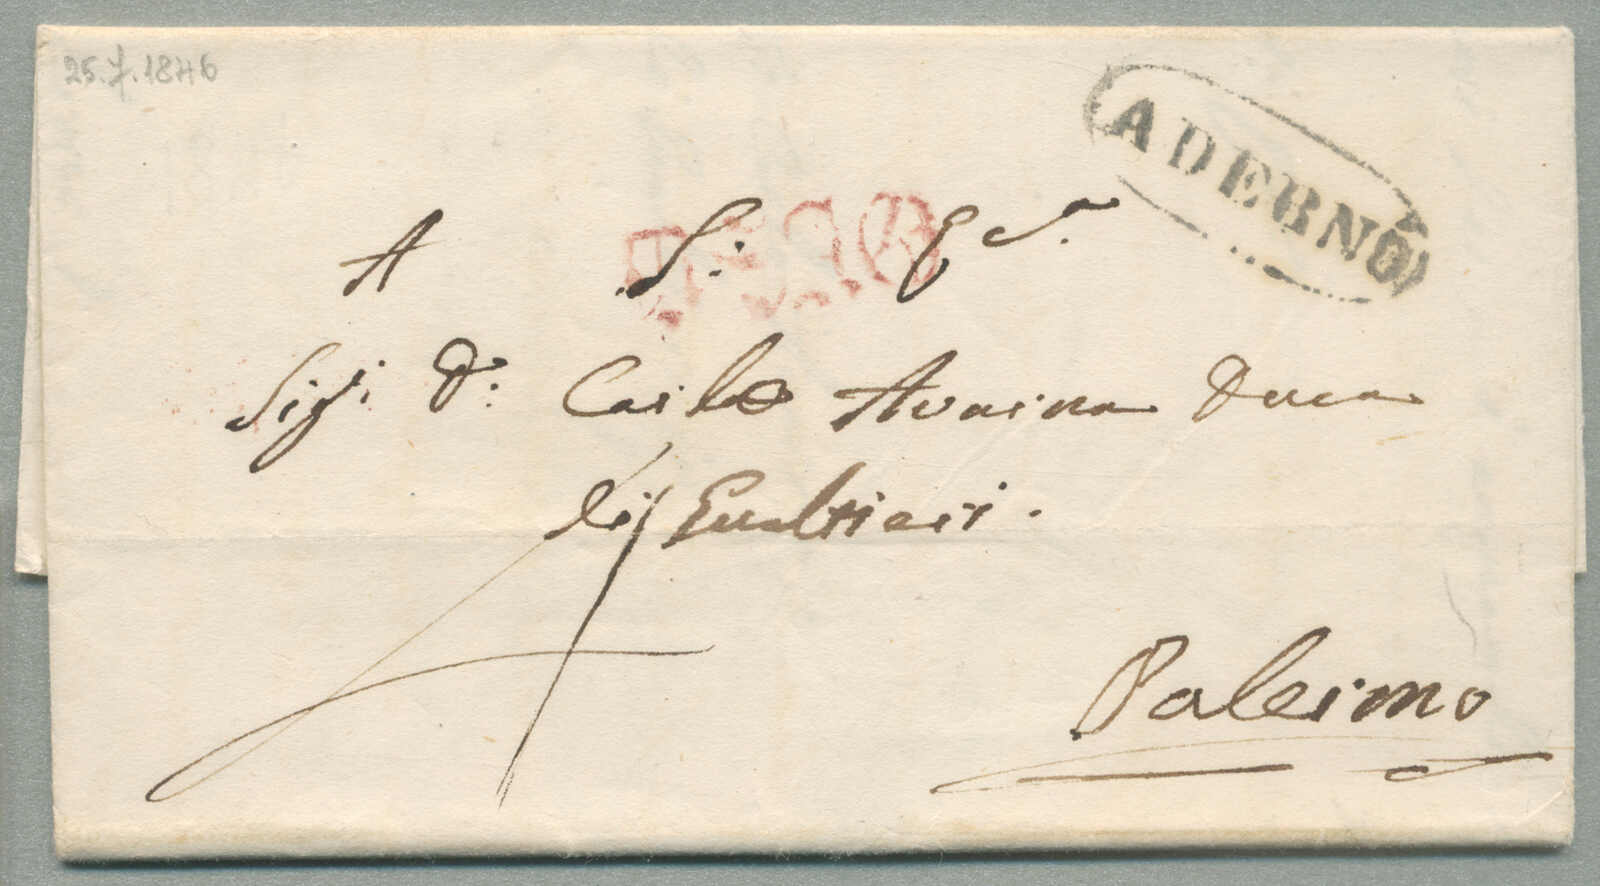 25.7.1846
ADERNÒ
A S. E.
Sig. D. Carlo Avarna Duca
di Gualtieri.
4
Palermo